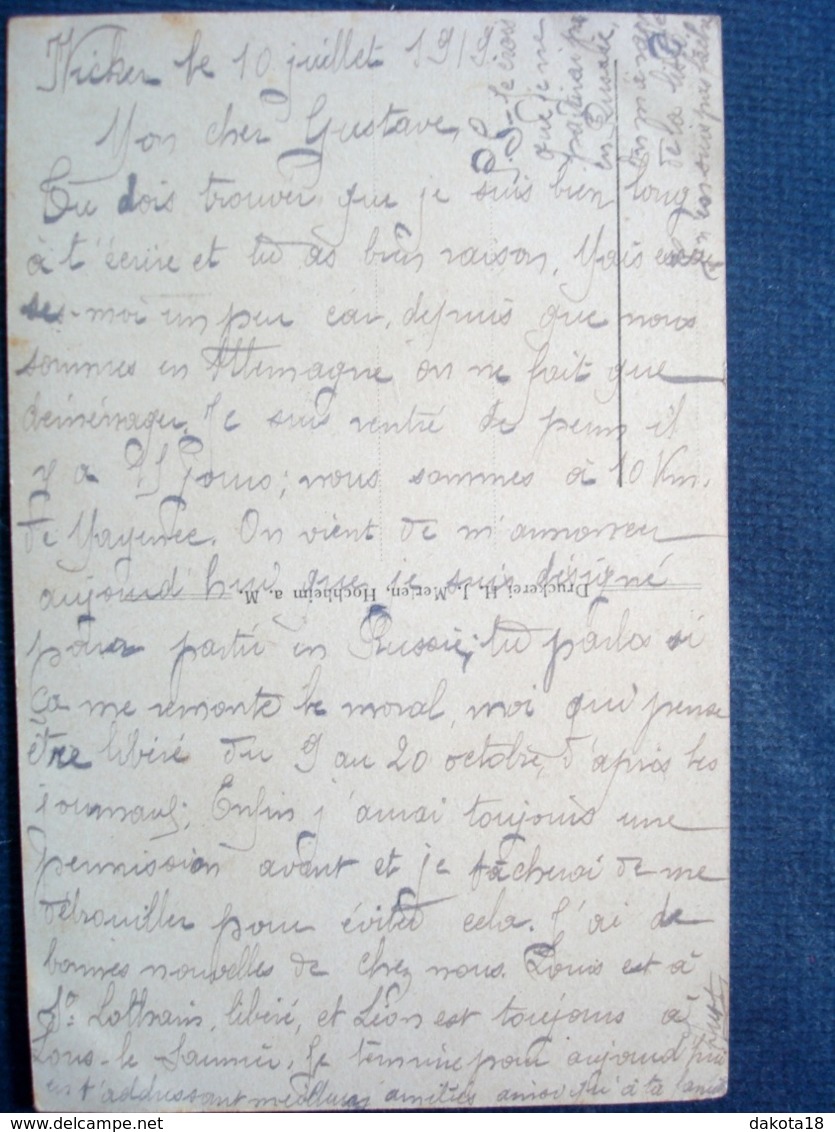 Wicker le 10 juillet 1919
Mon cher Gustave,
Tu dois trouver que je suis bien long
à t'écrire et tu as bien raison. Mais excu
ses-moi un peu car, depuis que nous
sommes en Allemagne on ne fait que
déménager. Je suis rentré de perm il
y a 15 jours; nous sommes à 10 Km.
de Mayence. On vient de m'annoncer
aujourd'hui que je suis désigné
pour partir en Russie; tu parles si
ça me remonte le moral, moi qui pense
être libéré du 9 au 20 octobre, d'après les
journaux; Enfin j'aurai toujours une
permission avant et je tâcherai de me
débrouiller pour éviter cela. J'ai de
bonnes nouvelles de chez nous. Louis est à
St Lothain, libéré, et Léon est toujours à
Lons-le-Saunier. Je termine pour aujourd'hui
en t'addressant meilleures amitiés ainsi qu'à ta famille
P.S- Je crois
que je ne
partirai pas
en Russie,
de la liste
Druckerei H. J. Merten, Hochheim a. M.
dakota18